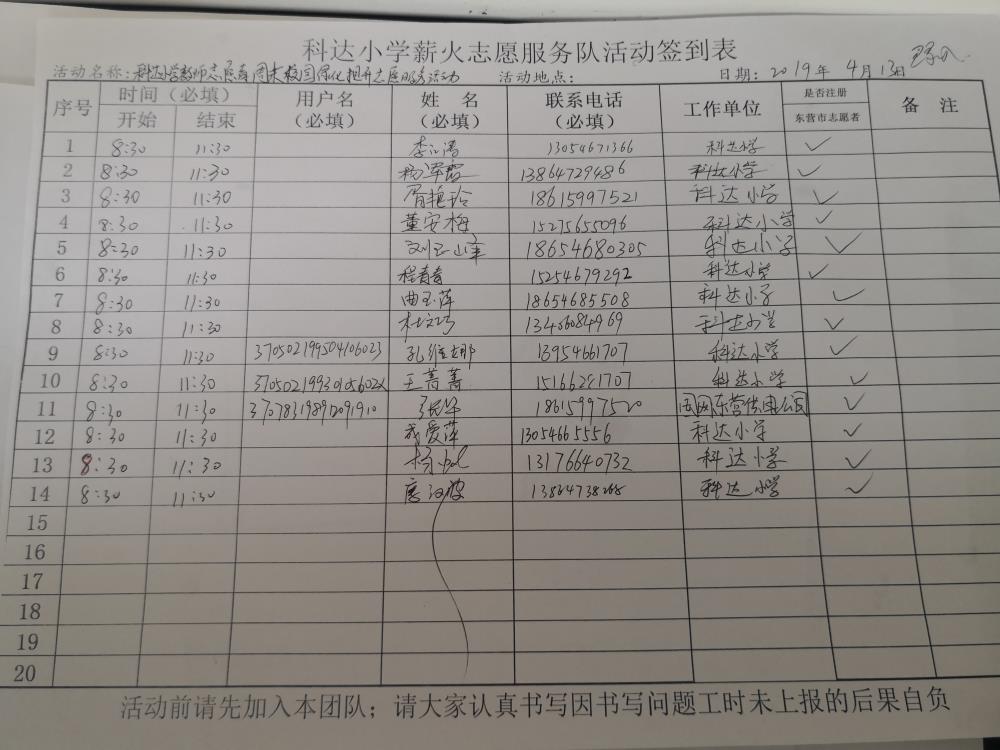 科达小学薪火志愿服务队活动签到表
活动名称：科达小学教师志愿者周末校园绿化提升志愿服务活动 活动地点： 日期：2019年4月13日
序号 时间（必填） 用户名（必填） 姓名（必填） 联系电话（必填） 工作单位 是否注册东营市志愿者 备注
开始 结束
1 8:30 11:30 13054671366 科达小学 ✓
2 8:30 11:30 13864729486 科达小学 ✓
3 8:30 11:30 胥艳玲 18615997521 科达小学 ✓
4 8:30 11:30 董安梅 15275655096 科达小学 ✓
5 8:30 11:30 18654680305 科达小学 ✓
6 8:30 11:30 程春春 15254679292 科达小学 ✓
7 8:30 11:30 曲玉萍 18654685508 科达小学 ✓
8 8:30 11:30 杜文巧 13406084969 科达小学 ✓
9 8:30 11:30 370502199504106023 孔维娜 13954661707 科达小学 ✓
10 8:30 11:30 37050219930105602X 王菁菁 15166281707 科达小学 ✓
11 8:30 11:30 370783198912091910 18615997520 国网东营供电公司 ✓
12 8:30 11:30 爱萍 13054665556 科达小学 ✓
13 8:30 11:30 13176640732 科达小学 ✓
14 8:30 11:30 科达小学 ✓
15
16
17
18
19
20
活动前请先加入本团队；请大家认真书写因书写问题工时未上报的后果自负